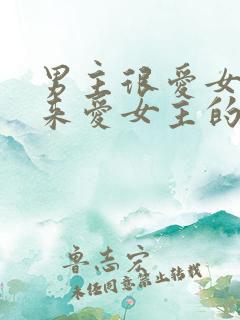 男主很爱女
来爱女主的
鲁志宏
未经同意禁止转载